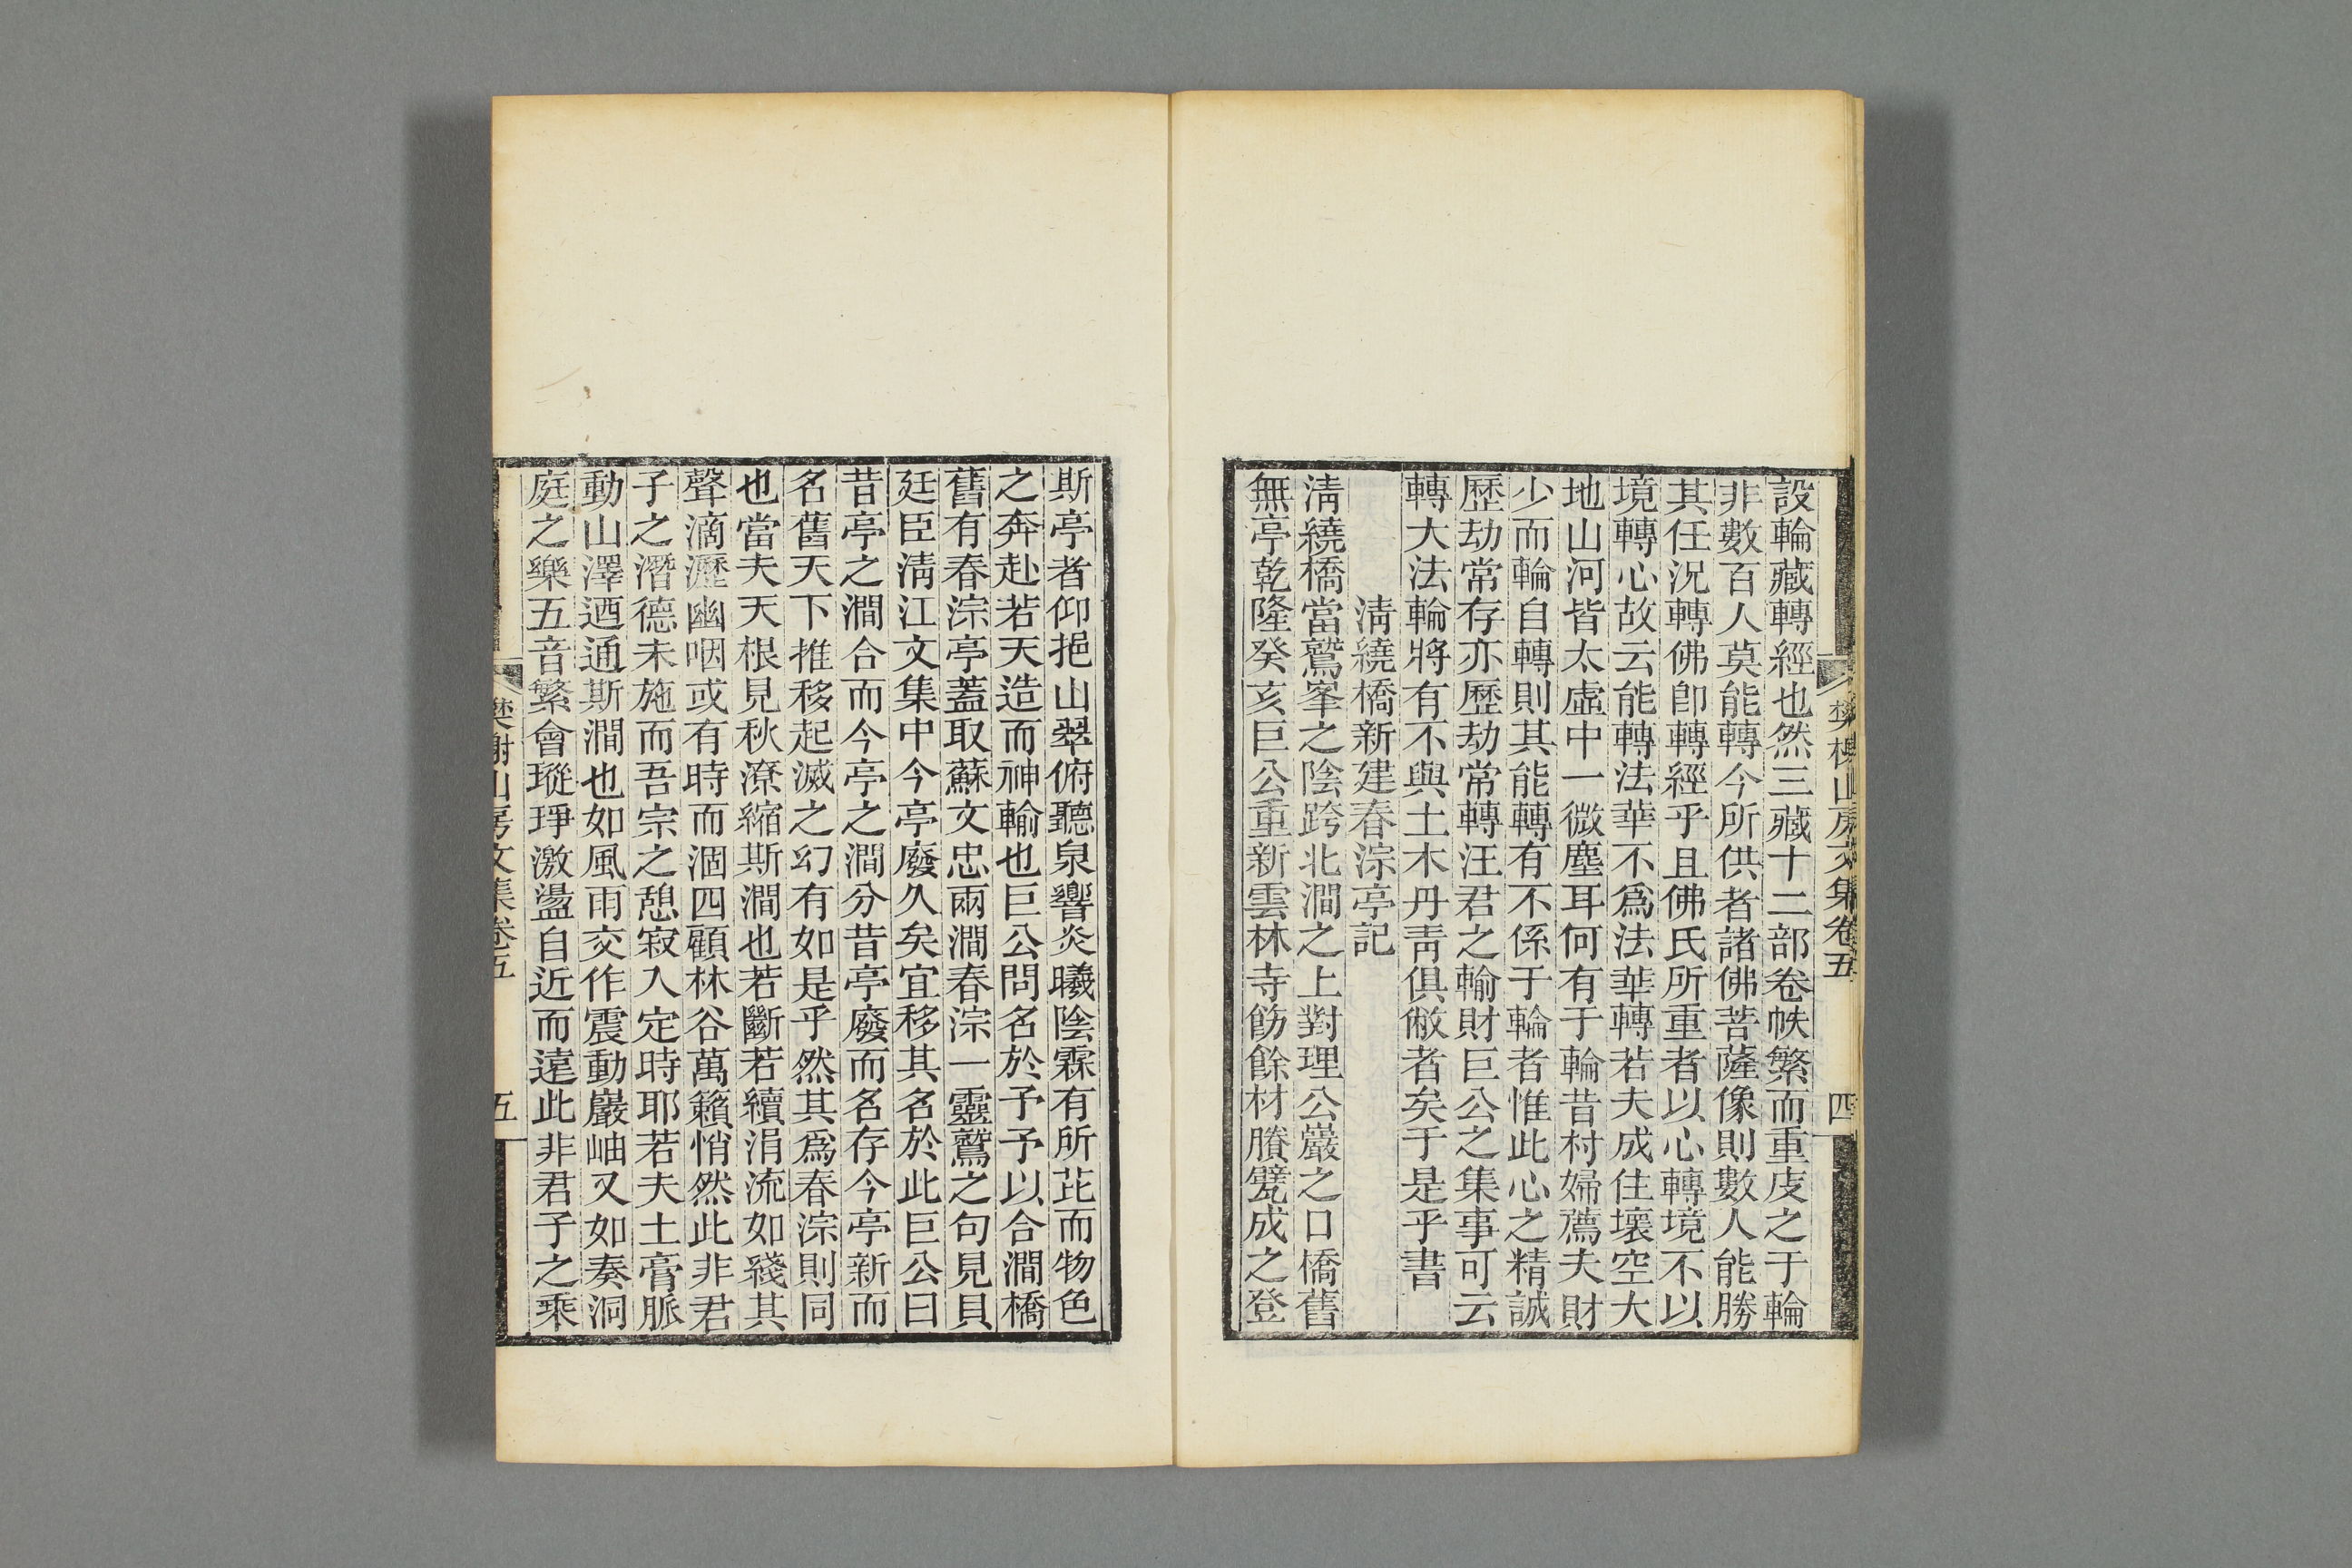 設輪藏轉經也然三藏十二部卷帙繁而重庋之于輪
非數百人莫能轉今所供者諸佛菩薩像則數人能勝
其任況轉佛卽轉經乎且佛氏所重者以心轉境不以
境轉心故云能轉法華不爲法華轉若夫成住壞空大
地山河皆太虛中一微塵耳何有于輪昔村婦薦夫財
少而輪自轉則其能轉有不係于輪者惟此心之精誠
歷劫常存亦歷劫常轉汪君之輸財巨公之集事可云
轉大法輪將有不與土木丹靑俱敝者矣于是乎書
淸繞橋新建春淙亭記
淸繞橋當鷲峯之陰跨北澗之上對理公巖之口橋舊
無亭乾隆癸亥巨公重新雲林寺飭餘材賸甓成之登
樊榭山房文集卷五
四
斯亭者仰挹山翠俯聽泉響炎曦陰霖有所芘而物色
之奔赴若天造而神輸也巨公問名於予予以合澗橋
舊有春淙亭蓋取蘇文忠兩澗春淙一靈鷲之句見貝
廷臣淸江文集中今亭廢久矣宜移其名於此巨公曰
昔亭之澗合而今亭之澗分昔亭廢而名存今亭新而
名舊天下推移起滅之幻有如是乎然其爲春淙則同
也當夫天根見秋潦縮斯澗也若斷若續涓流如綫其
聲滴瀝幽咽或有時而涸四顧林谷萬籟悄然此非君
子之潛德未施而吾宗之憩寂入定時耶若夫土膏脈
動山澤迺通斯澗也如風雨交作震動巖岫又如奏洞
庭之樂五音繁會瑽琤激盪自近而遠此非君子之乘
樊榭山房文集卷五
五